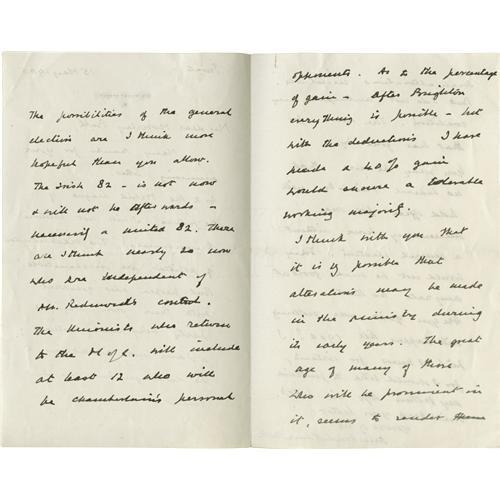 The possibilities of the general
election are I think more
hopeful than you allow.
The Irish 82 – is not now
& will not be afterwards –
necessarily a united 82. There
are I think nearly 20 now
who are independent of
Mr. Redmond's control.
The Unionists who return
to the H of C. will include
at least 12 who will
be Chamberlain's personal
opponents. As to the percentage
of gain – after Brighton
everything is possible – but
with the deductions I have
made a 40% gain
would ensure a tolerable
working majority.
I think with you that
it is possible that
alterations may be made
in the ministry during
its early years. The great
age of many of those
who will be prominent in
it, seems to render them